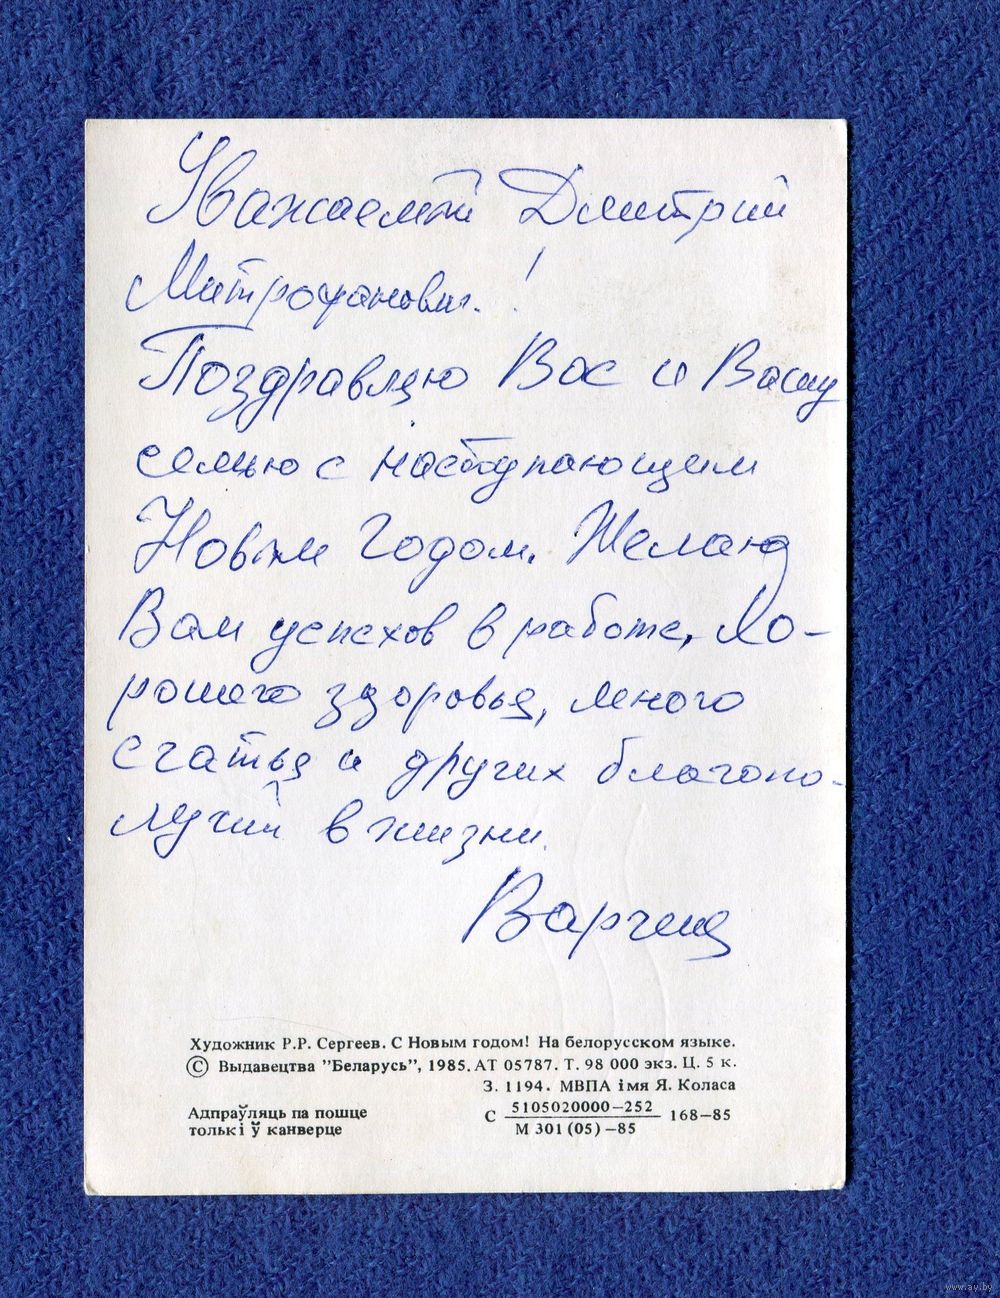 Уважаемый Дмитрий
Митрофанович!
Поздравляю Вас и Вашу
семью с наступающим
Новым Годом. Желаю
Вам успехов в работе, хо-
рошего здоровья, много
счатья и других благопо-
лучий в жизни.
Художник Р.Р. Сергеев. С Новым годом! На белорусском языке.
© Выдавецтва "Беларусь", 1985. АТ 05787. Т. 98 000 экз. Ц. 5 к.
З. 1194. МВПА імя Я. Коласа
Адпраўляць па пошце
толькі ў канверце
С 5105020000–252 168–85
М 301 (05)–85
www.ay.by